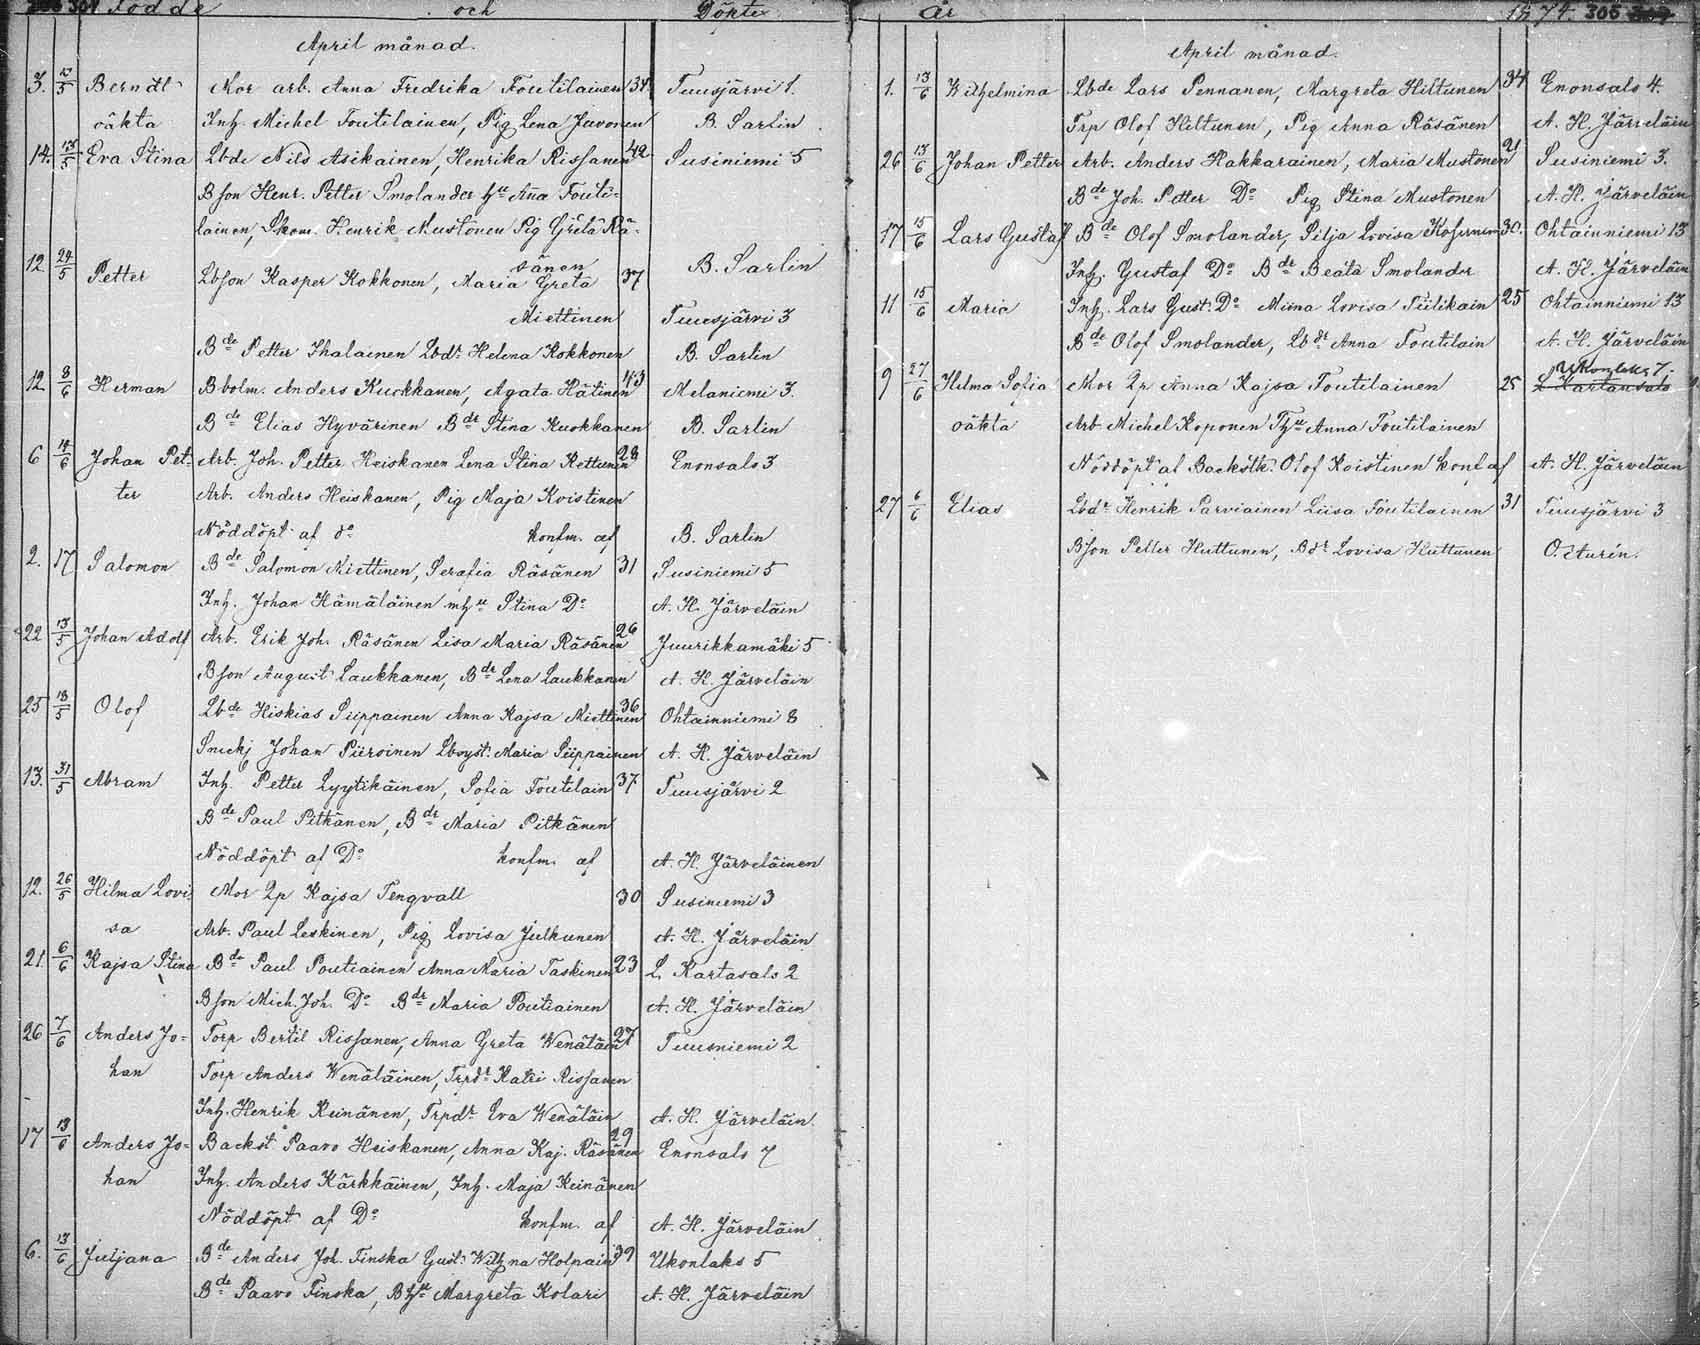 304 Födde och Döpte
April månad.
3. 13/5 Berndt Mor arb. Anna Fredrika Foutilainen 34. Tuusjärvi 1.
oäkta Inh. Michel Foutilainen, Pig Lena Juvonen B. Sarlin
14. 13/5 Eva Stina Lbde Nils Asikainen, Henrika Rissanen 42 Susiniemi 5
Bson Henr. Petter Smolander hu Aña Fouti-
lainen, Skom. Henrik Mustonen Pig Greta Rä-
sänen B. Sarlin
12. 24/5 Petter Lbson Kasper Kokkonen, Maria Greta 37
Miettinen Tuusjärvi 3
Bde Petter Ihalainen Lbdr Helena Kokkonen B. Sarlin
12 8/6 Herman Bbolm. Anders Kuokkanen, Agata Hätinen 43 Melaniemi 3.
Bde Elias Hyvärinen Bdr Stina Kuokkanen B. Sarlin
6 14/6 Johan Pet- Arb. Joh. Petter Heiskanen Lena Stina Kettunen 28 Enonsalo 3
ter Arb. Anders Heiskanen, Pig Maja Koistinen
Nöddöpt af do konfm. af B. Sarlin
2. 17 Salomon Bde Salomon Miettinen, Serafia Räsänen 31 Susiniemi 5
Inh. Johan Hämäläinen mhu Stina Do A. H. Järveläin
22 13/5 Johan Adolf Arb. Erik Joh. Räsänen Lisa Maria Räsänen 26 Juurikkamäki 5
Bson August Laukkanen, Bdr Lena Laukkanen A. H. Järveläin
25 18/5 Olof Lbde Hiskias Siippainen Anna Kajsa Miettinen 36 Ohtainniemi 8
Snickj Johan Piiroinen Lbsyst. Maria Siippainen A. H. Järveläin
13. 31/5 Abram Inh. Petter Lyytikäinen, Sofia Foutilain 37 Tuusjärvi 2
Bde Paul Pitkänen, Bdr Maria Pitkänen
Nöddöpt af Do konfm. af A. H. Järveläinen
12. 26/5 Hilma Lovi- Mor Qp Kajsa Tengvall 30 Susiniemi 3
sa Arb. Paul Leskinen, Pig Lovisa Julkunen A. H. Järveläin
21. 6/6 Kajsa Stina Bde Paul Poutiainen Anna Maria Taskinen 23 L. Kartasalo 2
Bson Mich. Joh. Do Bdr Maria Poutiainen A. H. Järveläin
26 7/6 Anders Jo- Torp Bertil Rissanen, Anna Greta Wenäläin 27 Tuusniemi 2
han Torp Anders Wenäläinen, Trpdr Katri Rissanen
Inh. Henrik Keinänen, Trpdr Eva Wenäläin A. H. Järveläin
17 13/6 Anders Jo- Backst Paavo Heiskanen, Anna Kaj. Räsänen 29 Enonsalo 7
han Inh. Anders Kärkkäinen, Inh. Maja Keinänen
Nöddöpt af Do konfm. af A. H. Järveläin
6. 13/6 Juljana Bde Anders Joh. Finska Gust. Wilhna Holpain 39 Ukonlaks 5
Bde Paavo Finska, Bhu Margreta Kolari A. H. Järveläin
År 1874. 305
April månad.
1. 13/6 Wilhelmina Lbde Lars Pennanen, Margreta Hiltunen 34 Enonsalo 4.
Trp Olof Hiltunen, Pig Anna Räsänen A. H. Järveläin
26 13/6 Johan Petter Arb. Anders Hakkarainen, Maria Mustonen 21 Susiniemi 3.
Bde Joh. Petter Do Pig Stina Mustonen A. H. Järveläin
17 15/6 Lars Gustaf Bde Olof Smolander, Silja Lovisa Kosunen 30. Ohtainniemi 13
Inh. Gustaf Do Bdr Beata Smolander A. H. Järveläin
11 15/6 Maria Inh. Lars Gust. Do Miina Lovisa Tiilikain 25 Ohtainniemi 13
Bde Olof Smolander, Lbdr Anna Foutilain A. H. Järveläin
9 27/6 Hilma Sofia Mor Qp Anna Kajsa Foutilainen 25 L Kartansalo Ukonlaks 7.
oäkta Arb. Michel Koponen Thu Anna Foutilainen
Nöddöpt af Backstk. Olof Koistinen konf af A. H. Järveläin
27 6/6 Elias Lbdr Henrik Parviainen Liisa Foutilainen 31 Tuusjärvi 3
Bson Petter Huttunen, Bdr Lovisa Huttunen O. Aturén.